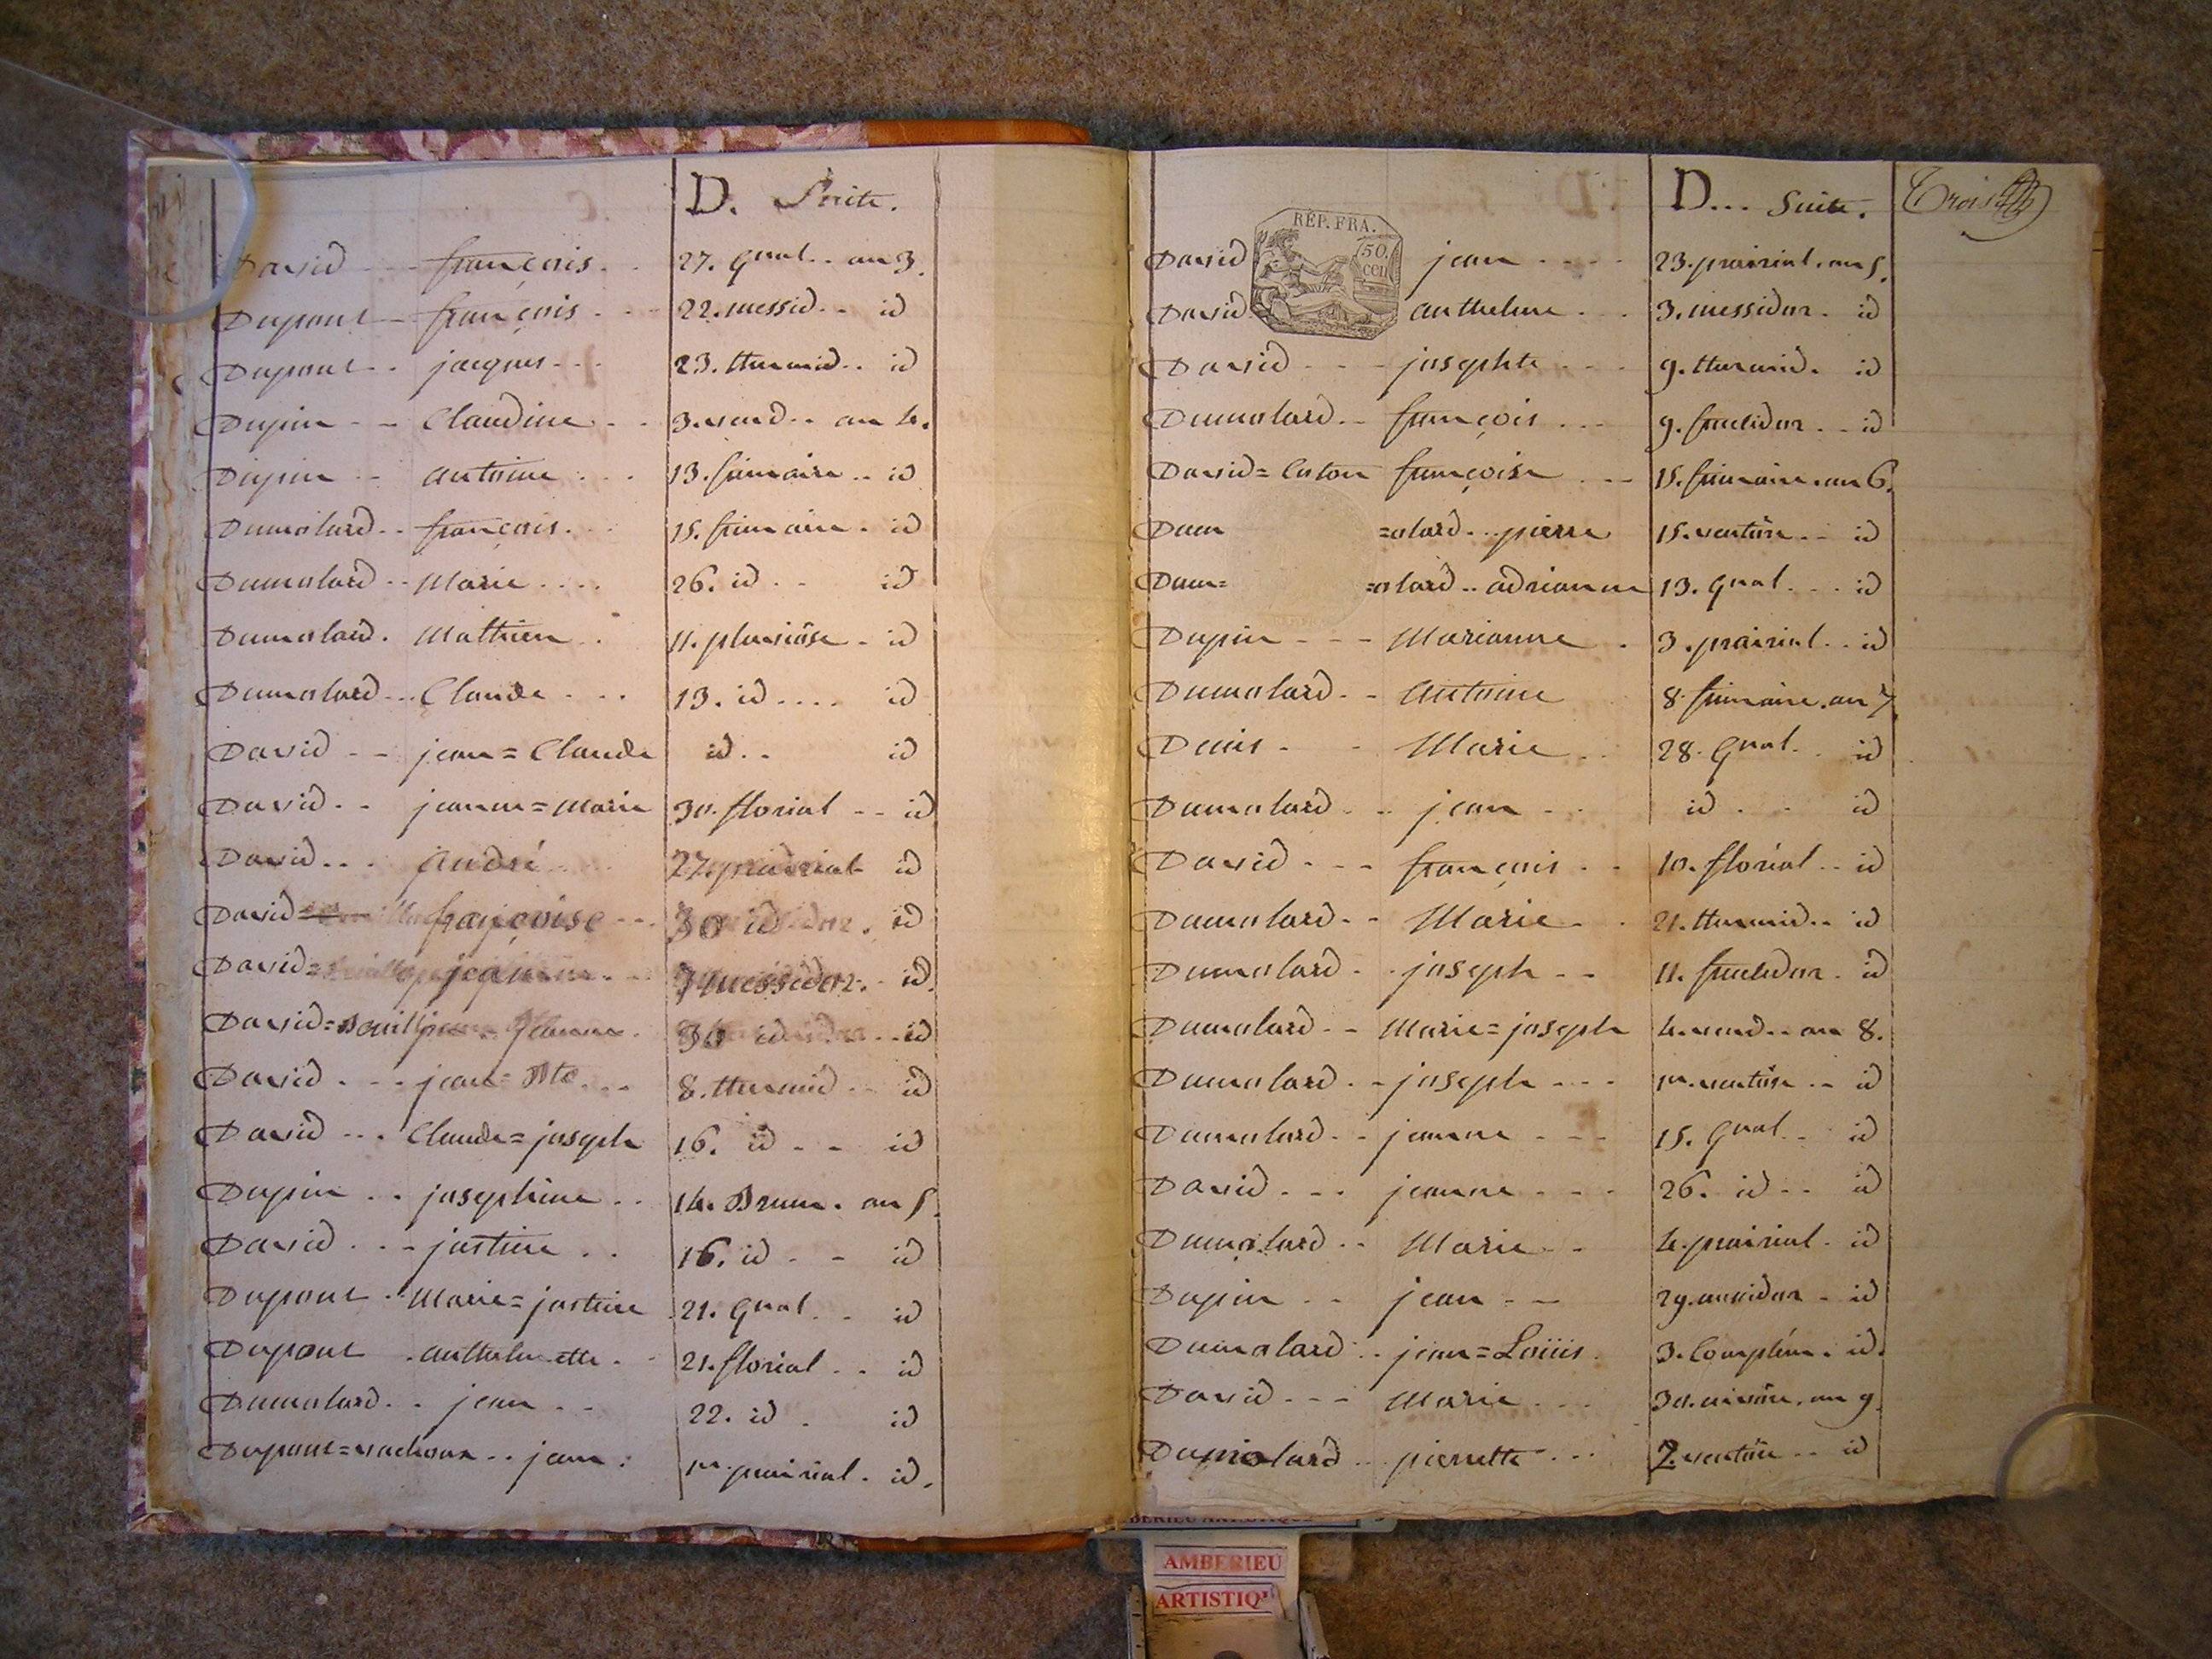 D. Suite.
David - - - françois. . 27. Gnal. . an 3.
Dupont - françois. - - 22. messid. . id
Dupont . . jacques - - - 23. thermid. . id
Dupin - - Claudine - - 3. vend. . an 4.
Dupin - - antoine . . . 13. frimaire . . id
Dumolard . . françois. . . 15. frimaire . id
Dumolard . . Marie . . . . 26. id . . id
Dumolard . Mathieu . 11. pluviôse - id
Dumolard . . . Claude . . . 13. id . . . . id
David - - jean=Claude id . . id
David . . jeanne=marie 30. florial - - id
David . . . andré 27. prairial id
David françoise - - - 30 id . id
David= jeanne - - messidor. - id.
David= jeanne . 30 id - - id
David . - - jean=Bte . . . 8. thermid . . id
David . . . Claude=joseph 16. id - - id
Dupin . . josephine . . 14. Brum . an 5.
David . . - justine . . 16. id - - id
Dupont . Marie=justine 21. Gnal . . id
Dupont . anthelmette . - 21. florial . . id
Dumolard . . jean - - 22. id . id
Dupont=vachoux . . jean . 1er. prairial . id.
D... Suite. Trois
RÉP. FRA.
50.
cen
David jean . . . . 23. prairial. an 5.
David anthelme . . . 3. messidor . id
David - - - josephte . . . 9. thermid . id
Dumolard . . françois . . . 9. fructidor . . id
David=Caton françoise . . . 15. frimaire . an 6.
Dum =olard . . . pierre 15. ventôse . . id
Dum= =olard . . adrianne 13. Gnal . . . id
Dupin - - - Marianne . 3. prairial . . id
Dumolard . - Antoine 8. frimaire . an 7.
Denis - - Marie . . 28. Gnal . . id
Dumolard . . . jean . . . id . . id
David . - - françois . . 10. florial . . id
Dumolard . - Marie . . 21. thermid . . id
Dumolard . . joseph - - 11. fructidor . id
Dumolard - - Marie=joseph 4. vend . . an 8.
Dumolard . - joseph - - - 1er. ventôse . . id
Dumolard . - jeanne - - - 15. Gnal . . id
David . . . jeanne - - - 26. id . . id
Dumolard . . Marie - - 4. prairial . id
Dupin . . jean - - 29. messidor - id
Dumolard . . jean=Loüis . 3. Complém . id.
David - - - Marie . . . 30. nivôse . an 9.
Dumolard . . pierrette . . . 7. ventôse . . id
AMBERIEU
ARTISTIQ